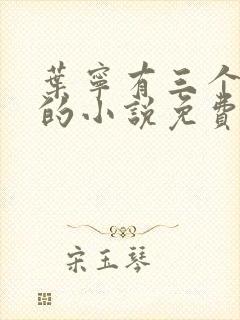 葉寧有三个
的小說免費
宋玉琴